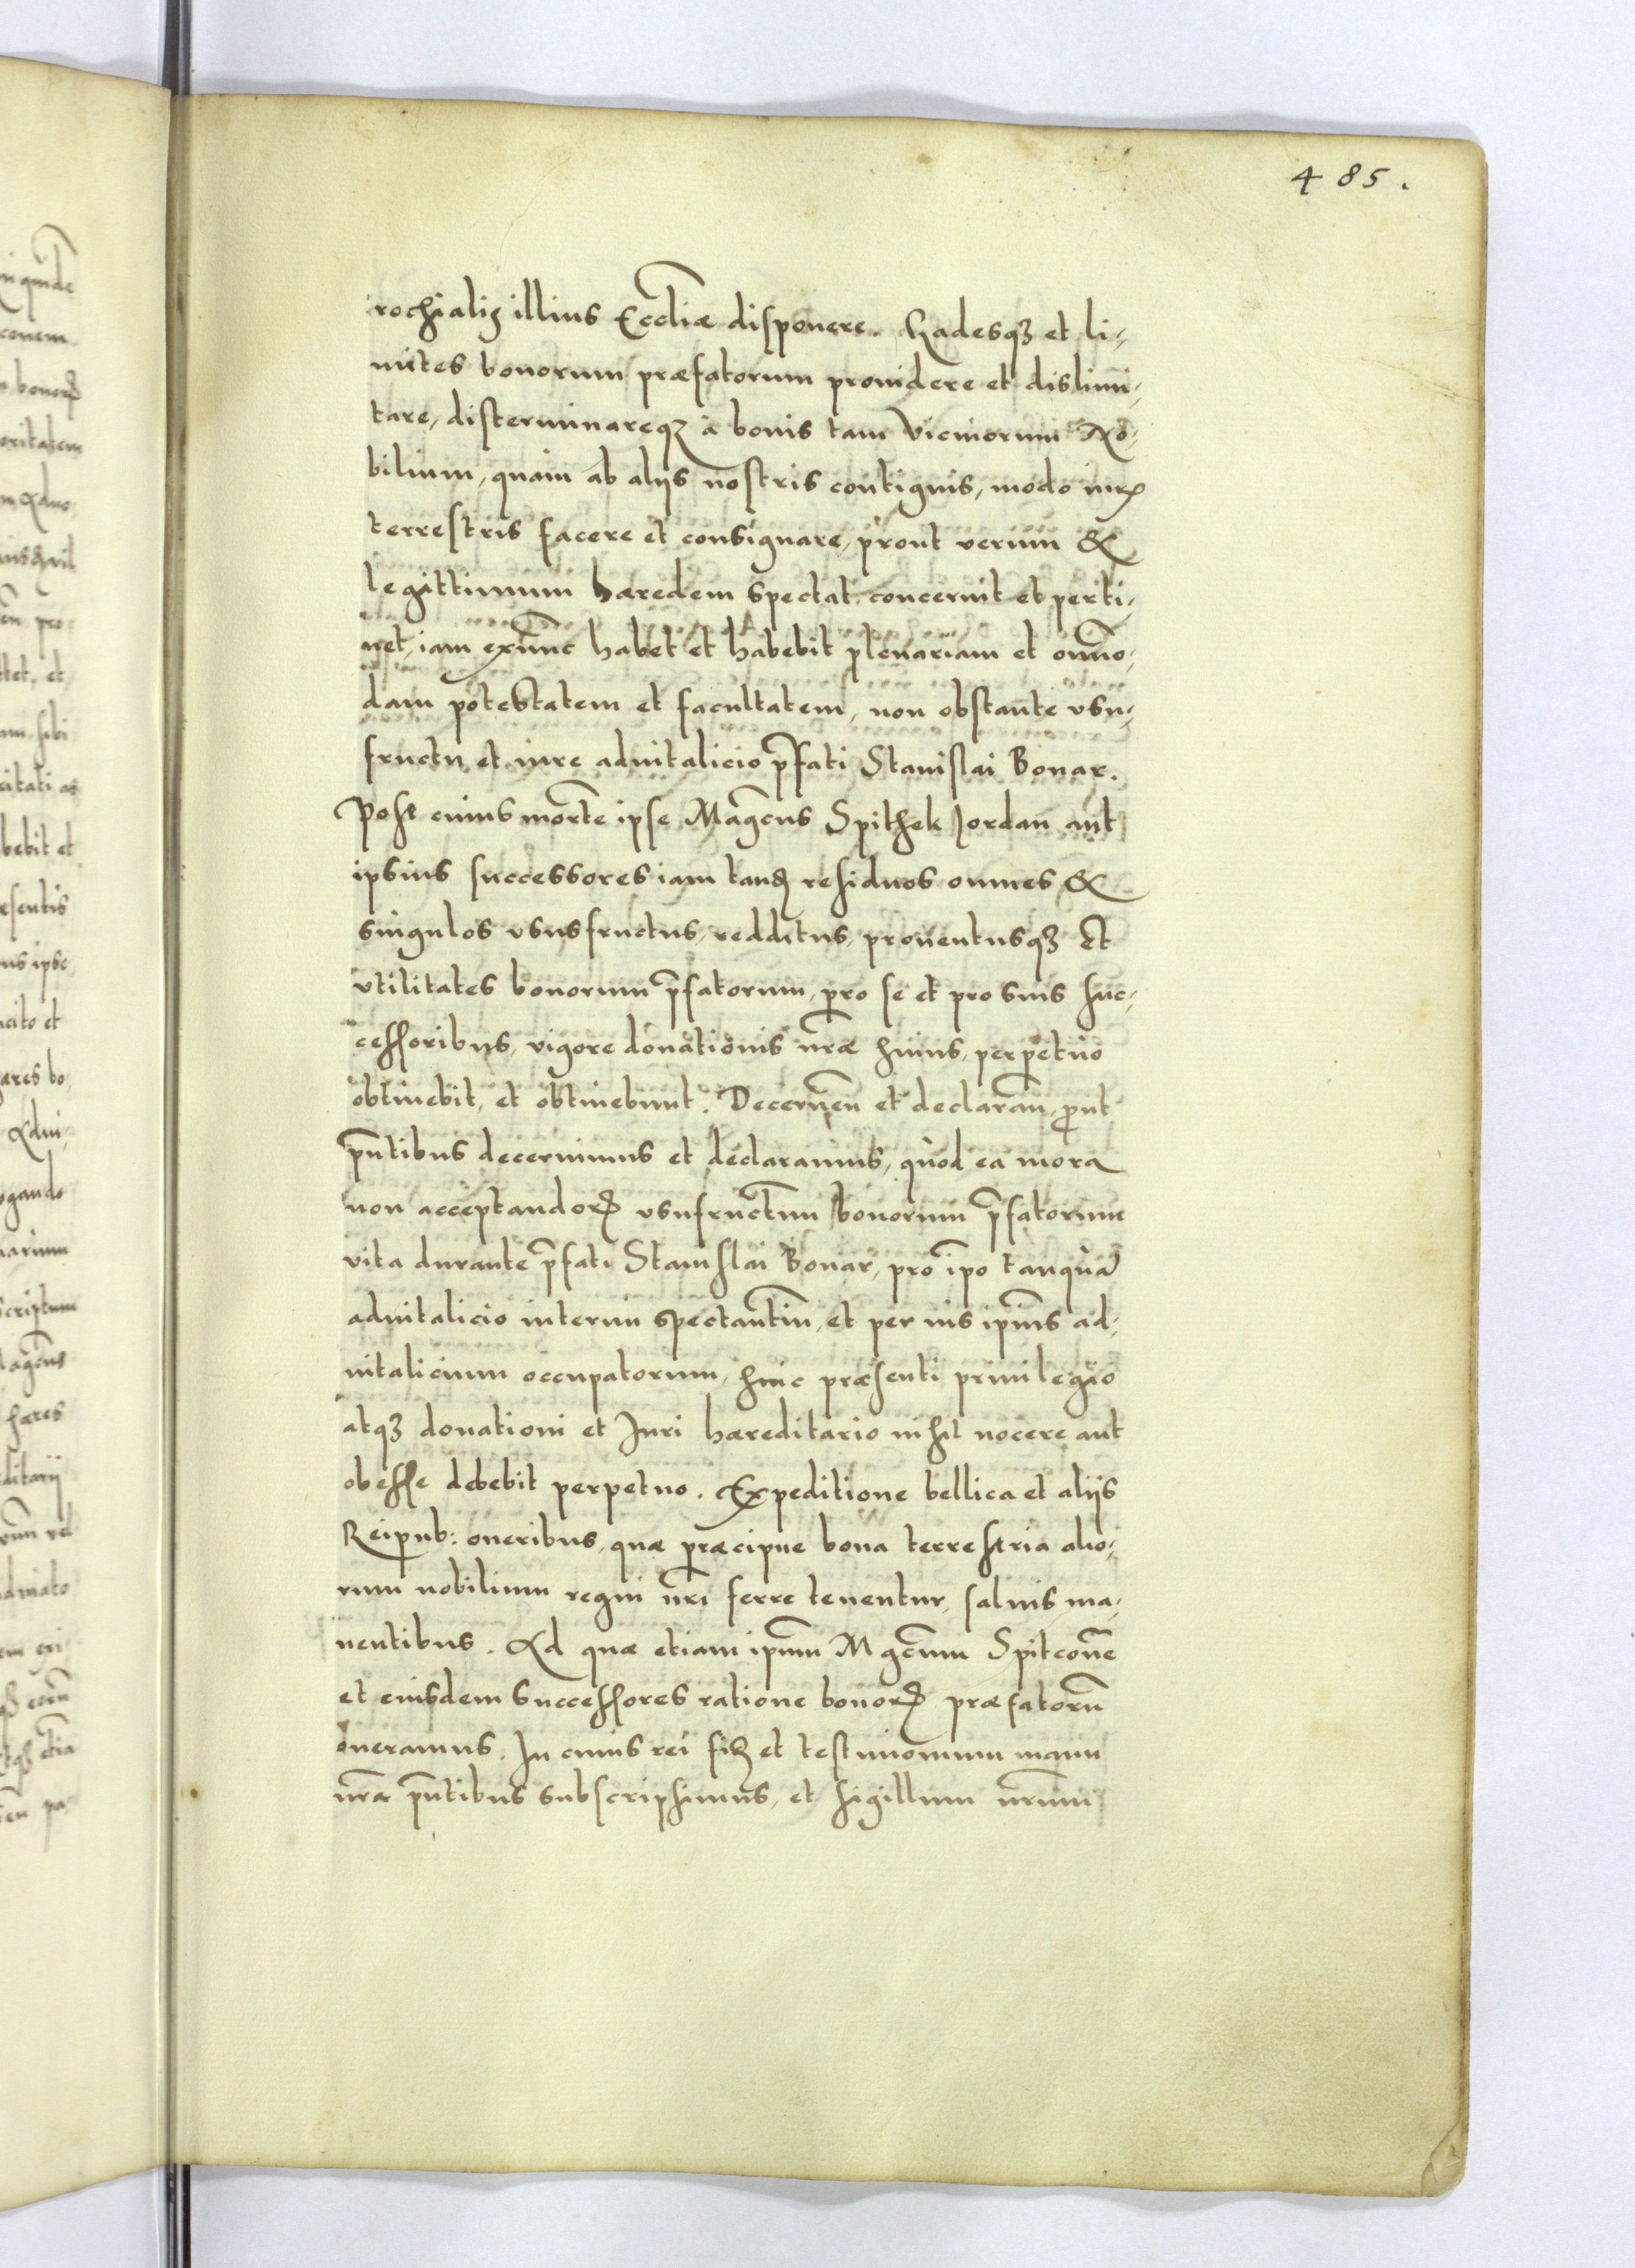 485.
rochialis illius Eccl̃iæ disponere. Gadesqꝫ et li-
mites bonorum præfatorum providere et dislimi-
tare, disterminareqꝫ à bonis tam vicinorum No-
bilium, quàm ab aliis nostris contiguis, modo iuris
terrestris facere et consignare, prout verum &
legittimum hæredem spectat, concernit et perti-
net, iam exñunc habet et habebit plenariam et omnio-
dam potestatem et facultatem, non obstante vsu-
fructu et iure aduitalicio p̃fati Stanislai Bonar.
Post cuius morte ipse Magc̃us Spithek Jordan aut
ipsius successores iam tandẽ residuos omnes &
singulos vsusfructus, redditus, prouentusqꝫ et
vtilitates bonorum p̃fatorum, pro se et pro suis suc-
cessoribus, vigore donationis nr̃æ huius, perpetuo
obtinebit, et obtinebunt. Decerneñ et declarañ, prout
pñtibus decernimus et declaramus, quòd ea mora
non acceptandorꝝ vsufructuum bonorum p̃fatorum
vita durante p̃fati Stanislai Bonar, pro ip̃o tanquã
aduitalicio interim spectantium, et per ius ip̃ius ad-
uitalicium occupatorum, huic præsenti priuilegio
atqꝫ donationi et Iuri hæreditario nihil nocere aut
obesse debebit perpetuo. Expeditione bellica et aliis
Reipub: oneribus, quæ præcipue bona terrestria alio-
rum nobilium regni nr̃i ferre tenentur, saluis ma-
nentibus. Ad quæ etiam ip̃um Mgc̃um Spitconẽ
et eiusdem successores ratione bonorꝝ præfatorũ
oneramus. In cuius rei fidẽ et testimonium manu
nr̃a pñtibus subscripsimus, et sigillum nr̃um